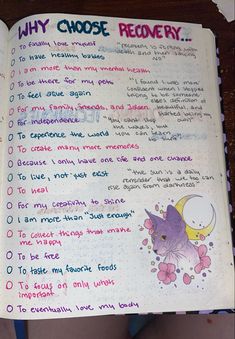 WHY CHOOSE RECOVERY...
To finally love myself
To have healthy babies
I am more than my mental health
To be there for my pets
To feel alive again
For my family, friends, and Jaden
For independence
To experience the world
To create many more memories
Because I only have one life and one chance
To live, not just exist
To heal
For my creativity to shine
I am more than "Just enough"
To collect things that make
me happy
To be free
To taste my favorite foods
To focus on only whats
important
To eventually love my body
"recovery is
death and then saying
NO"
"I found I was more
confident when I stopped
trying to be someone
else's definition of
"You can't stop
the waves,
you can learn
"the sun is a daily
reminder that we too can
rise again from darkness."